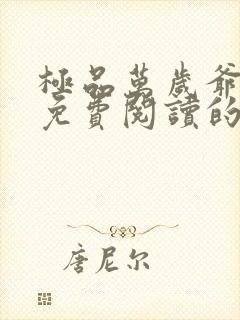 極品萬歲爺
免費閱讀的
唐尼尔